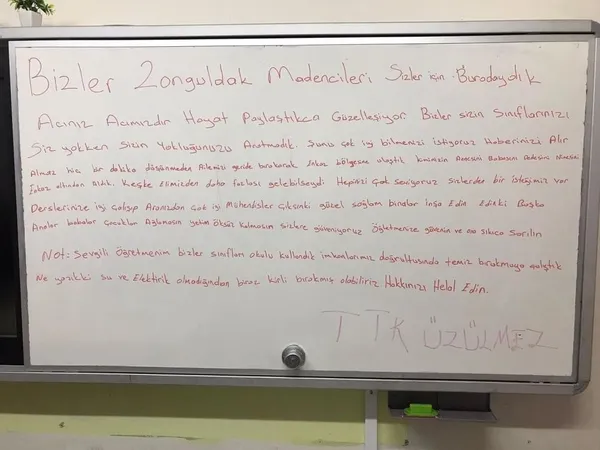 Bizler Zonguldak Madencileri Sizler için Buradaydık
Acınız Acımızdır Hayat Paylaştıkca Güzelleşiyor Bizler sizin Sınıflarınızı
Siz yokken sizin Yokluğunuzu Aratmadık. Şunu çok iyi bilmenizi istiyoruz Haberinizi Alır
Almaz hiç bir dakika düşünmeden Ailemizi geride bırakarak Enkaz bölgesine ulaştık kiminizin Annesini Babasını Dedesini Ninesini
Enkaz altından Aldık. Keşke Elimizden daha fazlası gelebilseydi Hepinizi Çok seviyoruz sizlerden bir isteğimiz var
Derslerinize iyi çalışıp Aranızdan çok iyi Mühendisler Çıksınki güzel sağlam binalar İnşa Edin Edinki Başka
Analar babalar Çocuklar Ağlamasın yetim Öksüz kalmasın sizlere güveniyoruz Öğretmenize güvenin ve ona sıkıca Sarılın
Not: Sevgili Öğretmenim bizler sınıfları okulu kullandık imkanlarımız doğrultusunda temiz bırakmaya çalıştık
Ne yazıkki su ve Elektirik olmadığından biraz kirli bırakmış olabiliriz Hakkınızı Helal Edin.
TTK ÜZÜLMEZ